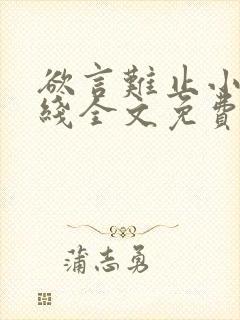 欲言難止小
綫全文免費
蒲志勇